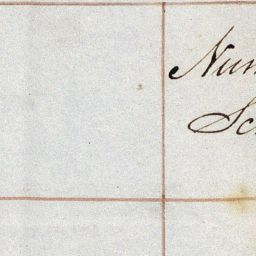 Num
Sc